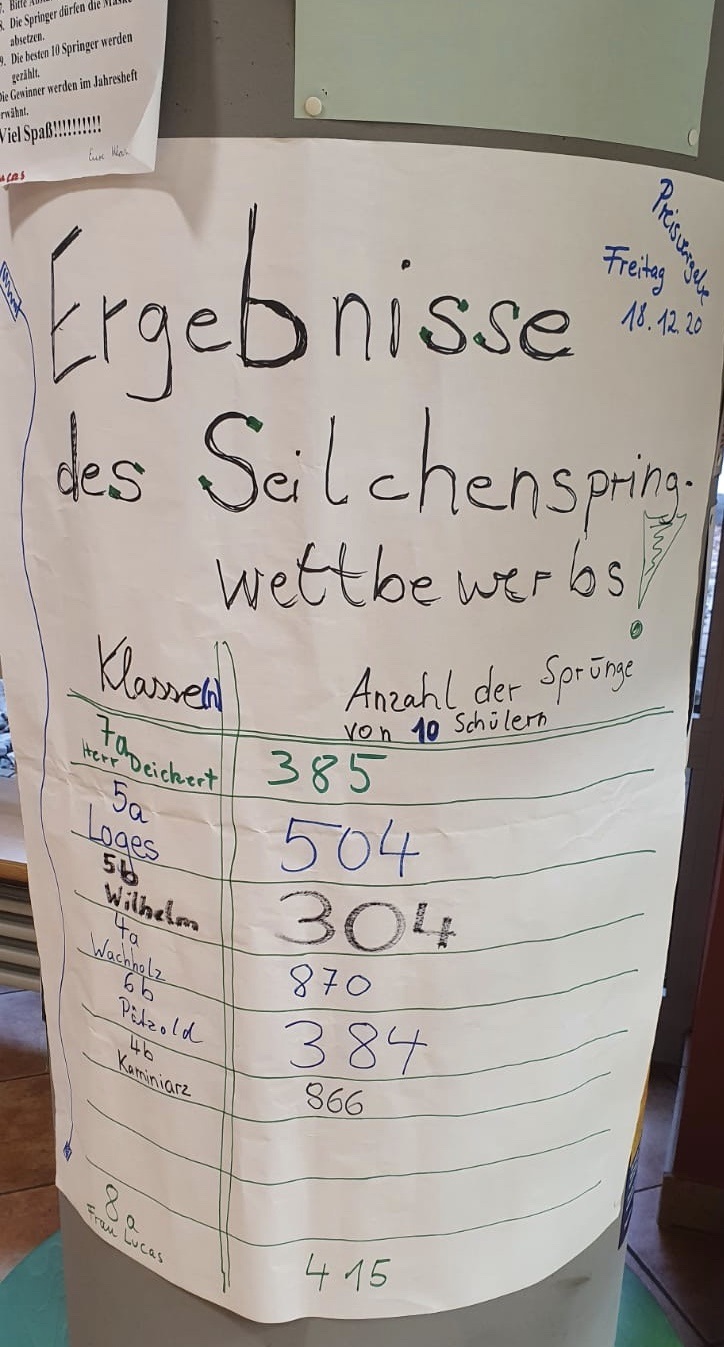 8. Die Springer dürfen die Maske
absetzen.
9. Die besten 10 Springer werden
gezählt.
Die Gewinner werden im Jahresheft
erwähnt.
Viel Spaß!!!!!!!!!!
Preisvergabe
Freitag
18.12.20
Ergebnisse
des Seilchenspring-
wettbewerbs!
Klasse(n)
Anzahl der Sprünge
von 10 Schülern
7a
Herr Deichert
385
5a
Loges
504
5b
Wilhelm
304
4a
Wachholz
870
6b
Pätzold
384
4b
Kaminiarz
866
8a
Frau Lucas
415